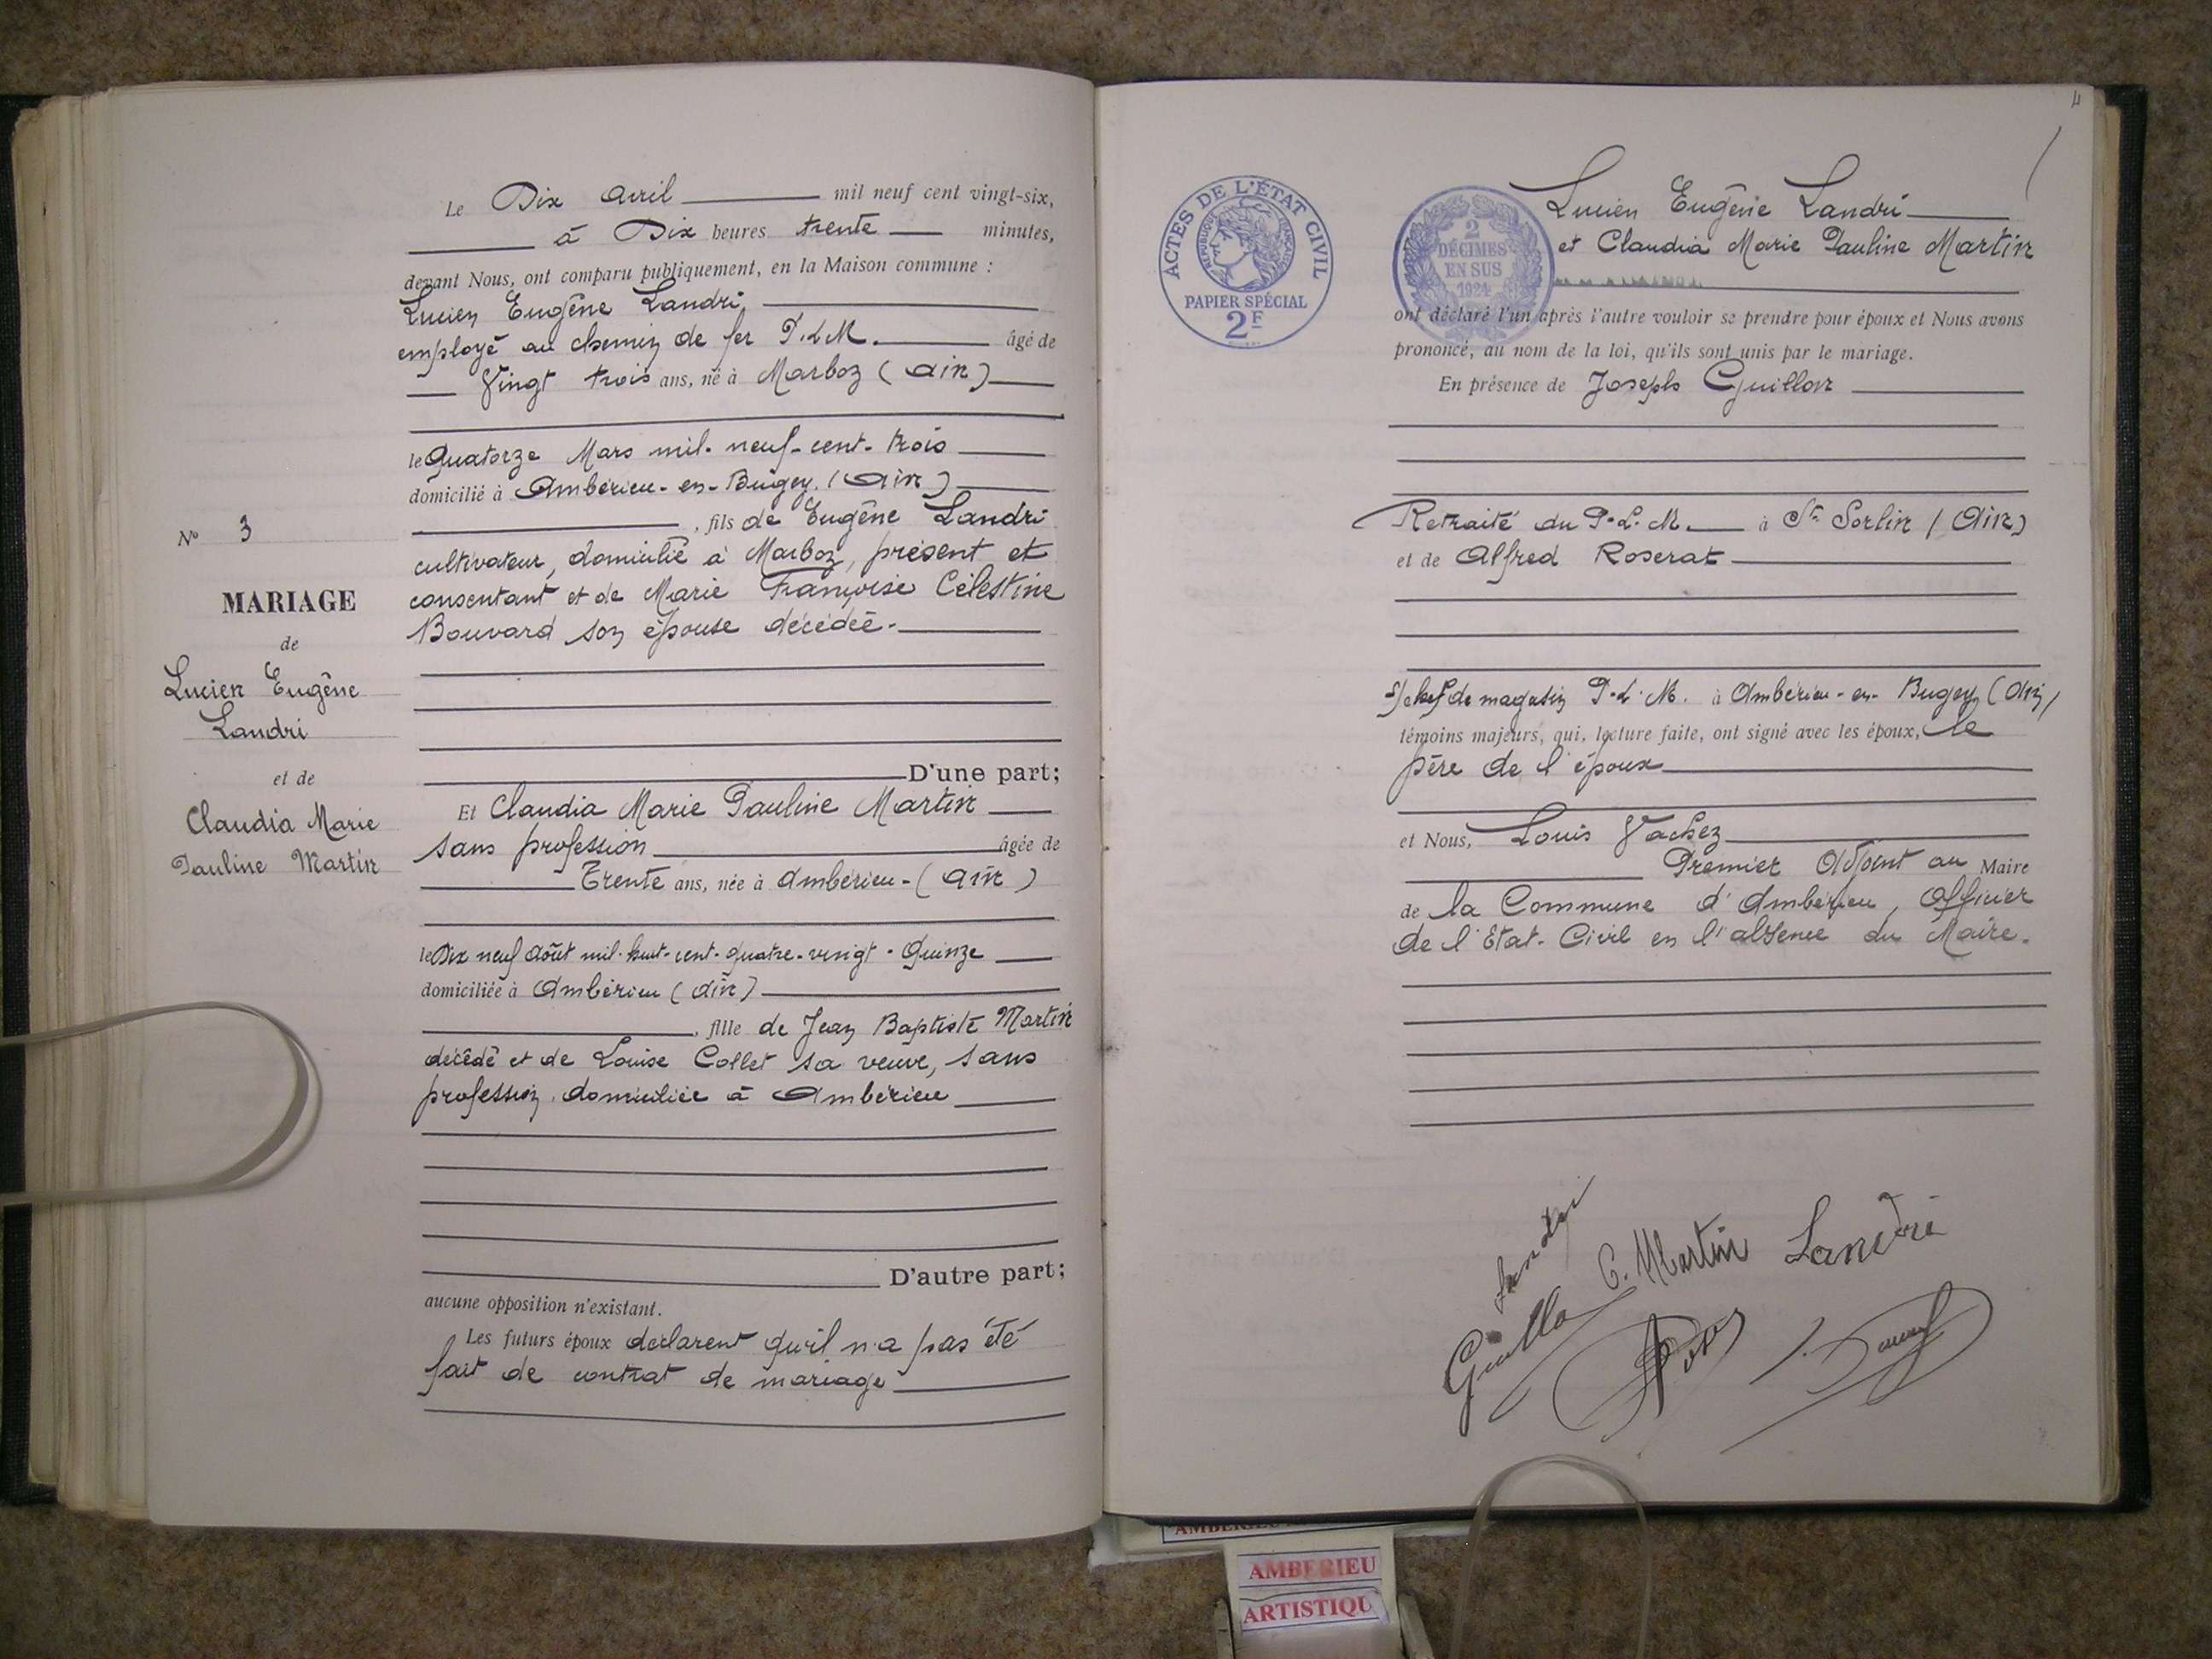 N° 3
MARIAGE
de
Lucien Eugène
Landri
et de
Claudia Marie
Pauline Martin
Le Dix Avril mil neuf cent vingt-six,
à Dix heures trente minutes,
devant Nous, ont comparu publiquement, en la Maison commune :
Lucien Eugène Landri
employé au chemin de fer P.L.M. âgé de
Vingt trois ans, né à Marboz (Ain)
le Quatorze Mars mil-neuf-cent-trois
domicilié à Ambérieu-en-Bugey (Ain)
, fils de Eugène Landri
cultivateur, domicilié à Marboz, présent et
consentant et de Marie Françoise Célestine
Bouvard son épouse décédée.
D'une part;
Et Claudia Marie Pauline Martin
sans profession âgée de
Trente ans, née à Ambérieu-(Ain)
le Dix neuf Août mil-huit-cent-quatre-vingt-Quinze
domiciliée à Ambérieu (Ain)
, fille de Jean Baptiste Martin
décédé et de Louise Collet sa veuve, sans
profession, domiciliée à Ambérieu
D'autre part;
aucune opposition n'existant.
Les futurs époux déclarent qu'il n'a pas été
fait de contrat de mariage
4
ACTES DE L'ÉTAT CIVIL
RÉPUBLIQUE FRANÇAISE
PAPIER SPÉCIAL
2F
2
DÉCIMES
EN SUS
1924
Lucien Eugène Landri
et Claudia Marie Pauline Martin
ont déclaré l'un après l'autre vouloir se prendre pour époux et Nous avons
prononcé, au nom de la loi, qu'ils sont unis par le mariage.
En présence de Joseph Guillon
Retraité du P.L.M. à St Sorlin (Ain)
et de Alfred Roserat
S/chef de magasin P.L.M. à Ambérieu-en-Bugey (Ain)
témoins majeurs, qui, lecture faite, ont signé avec les époux, le
père de l'époux
et Nous, Louis Vachez
Premier Adjoint au Maire
de la Commune d'Ambérieu, Officier
de l'Etat-Civil en l'absence du Maire.
Landri
C. Martin Landri
AMBERIEU
ARTISTIQU